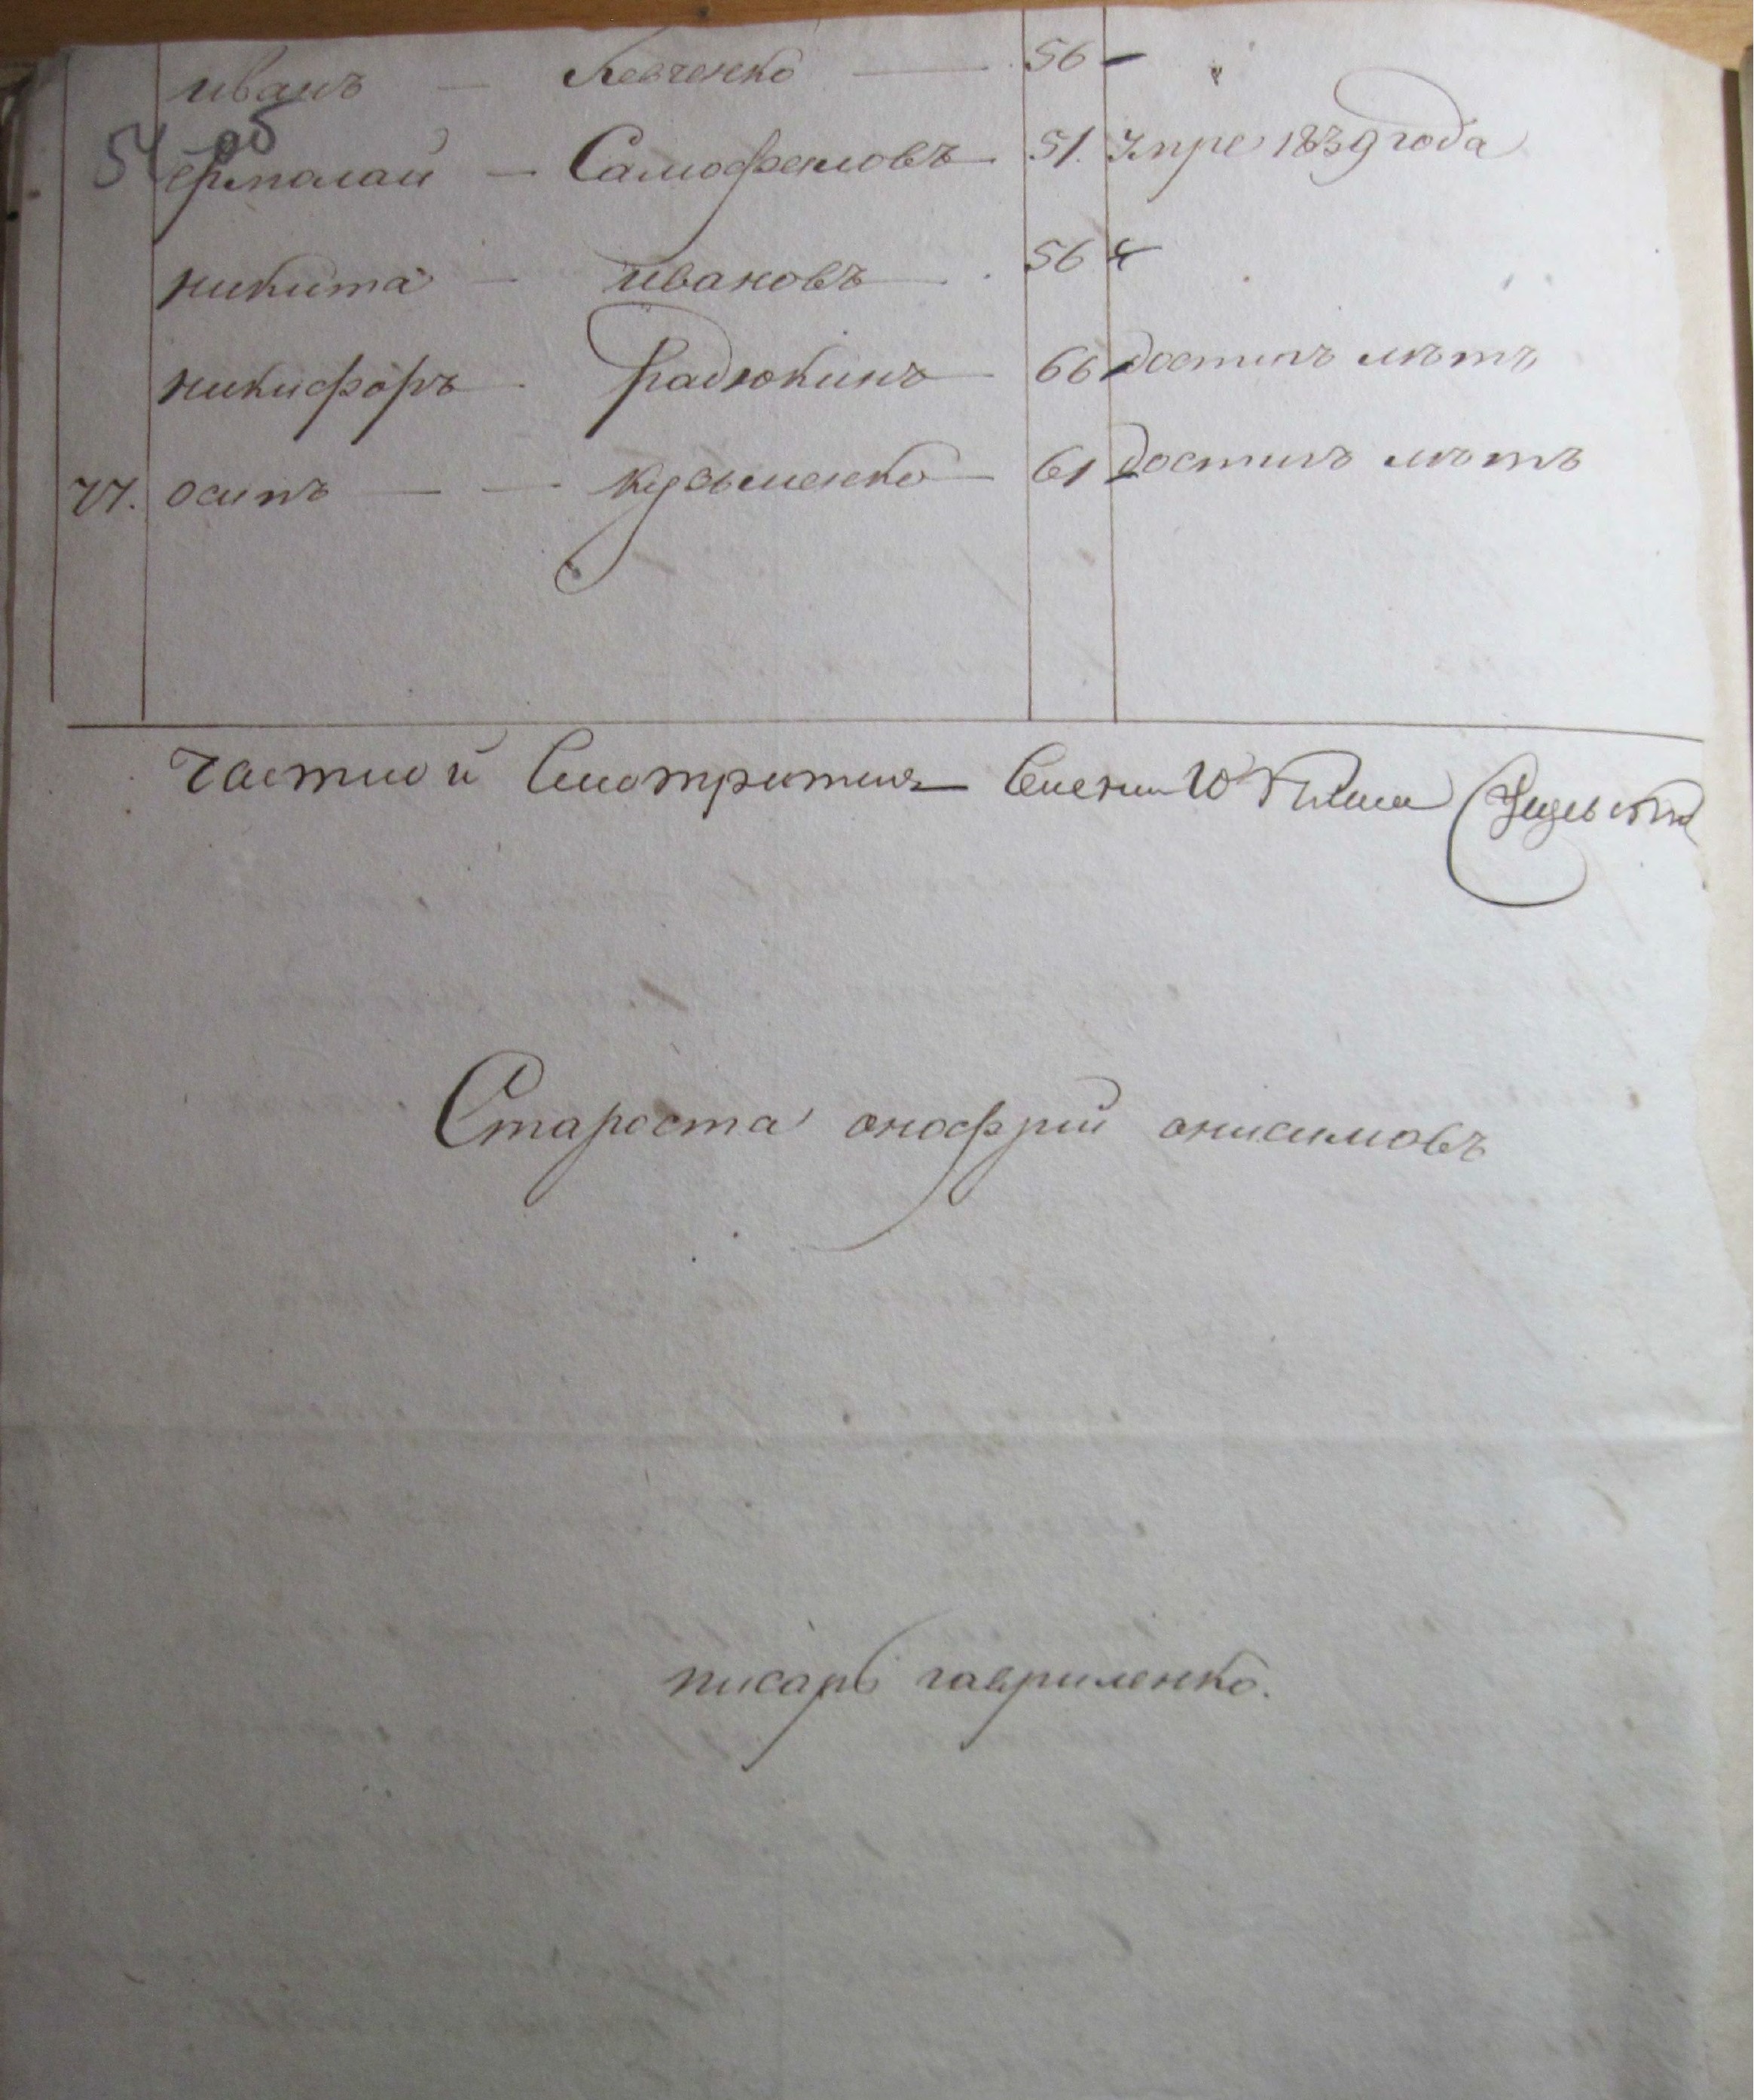 иванъ — Левченко — 56 —
54 об
ермолай — Самофаловъ 51. Умре 1839 года
никита — ивановъ — 56
никифоръ радюкинъ — 66 достигъ лѣтъ
77. осипъ — — кузьменко — 61 достигъ лѣтъ
Частной Смотритель
Староста онофрій онисимовъ
писарь гавриленко.